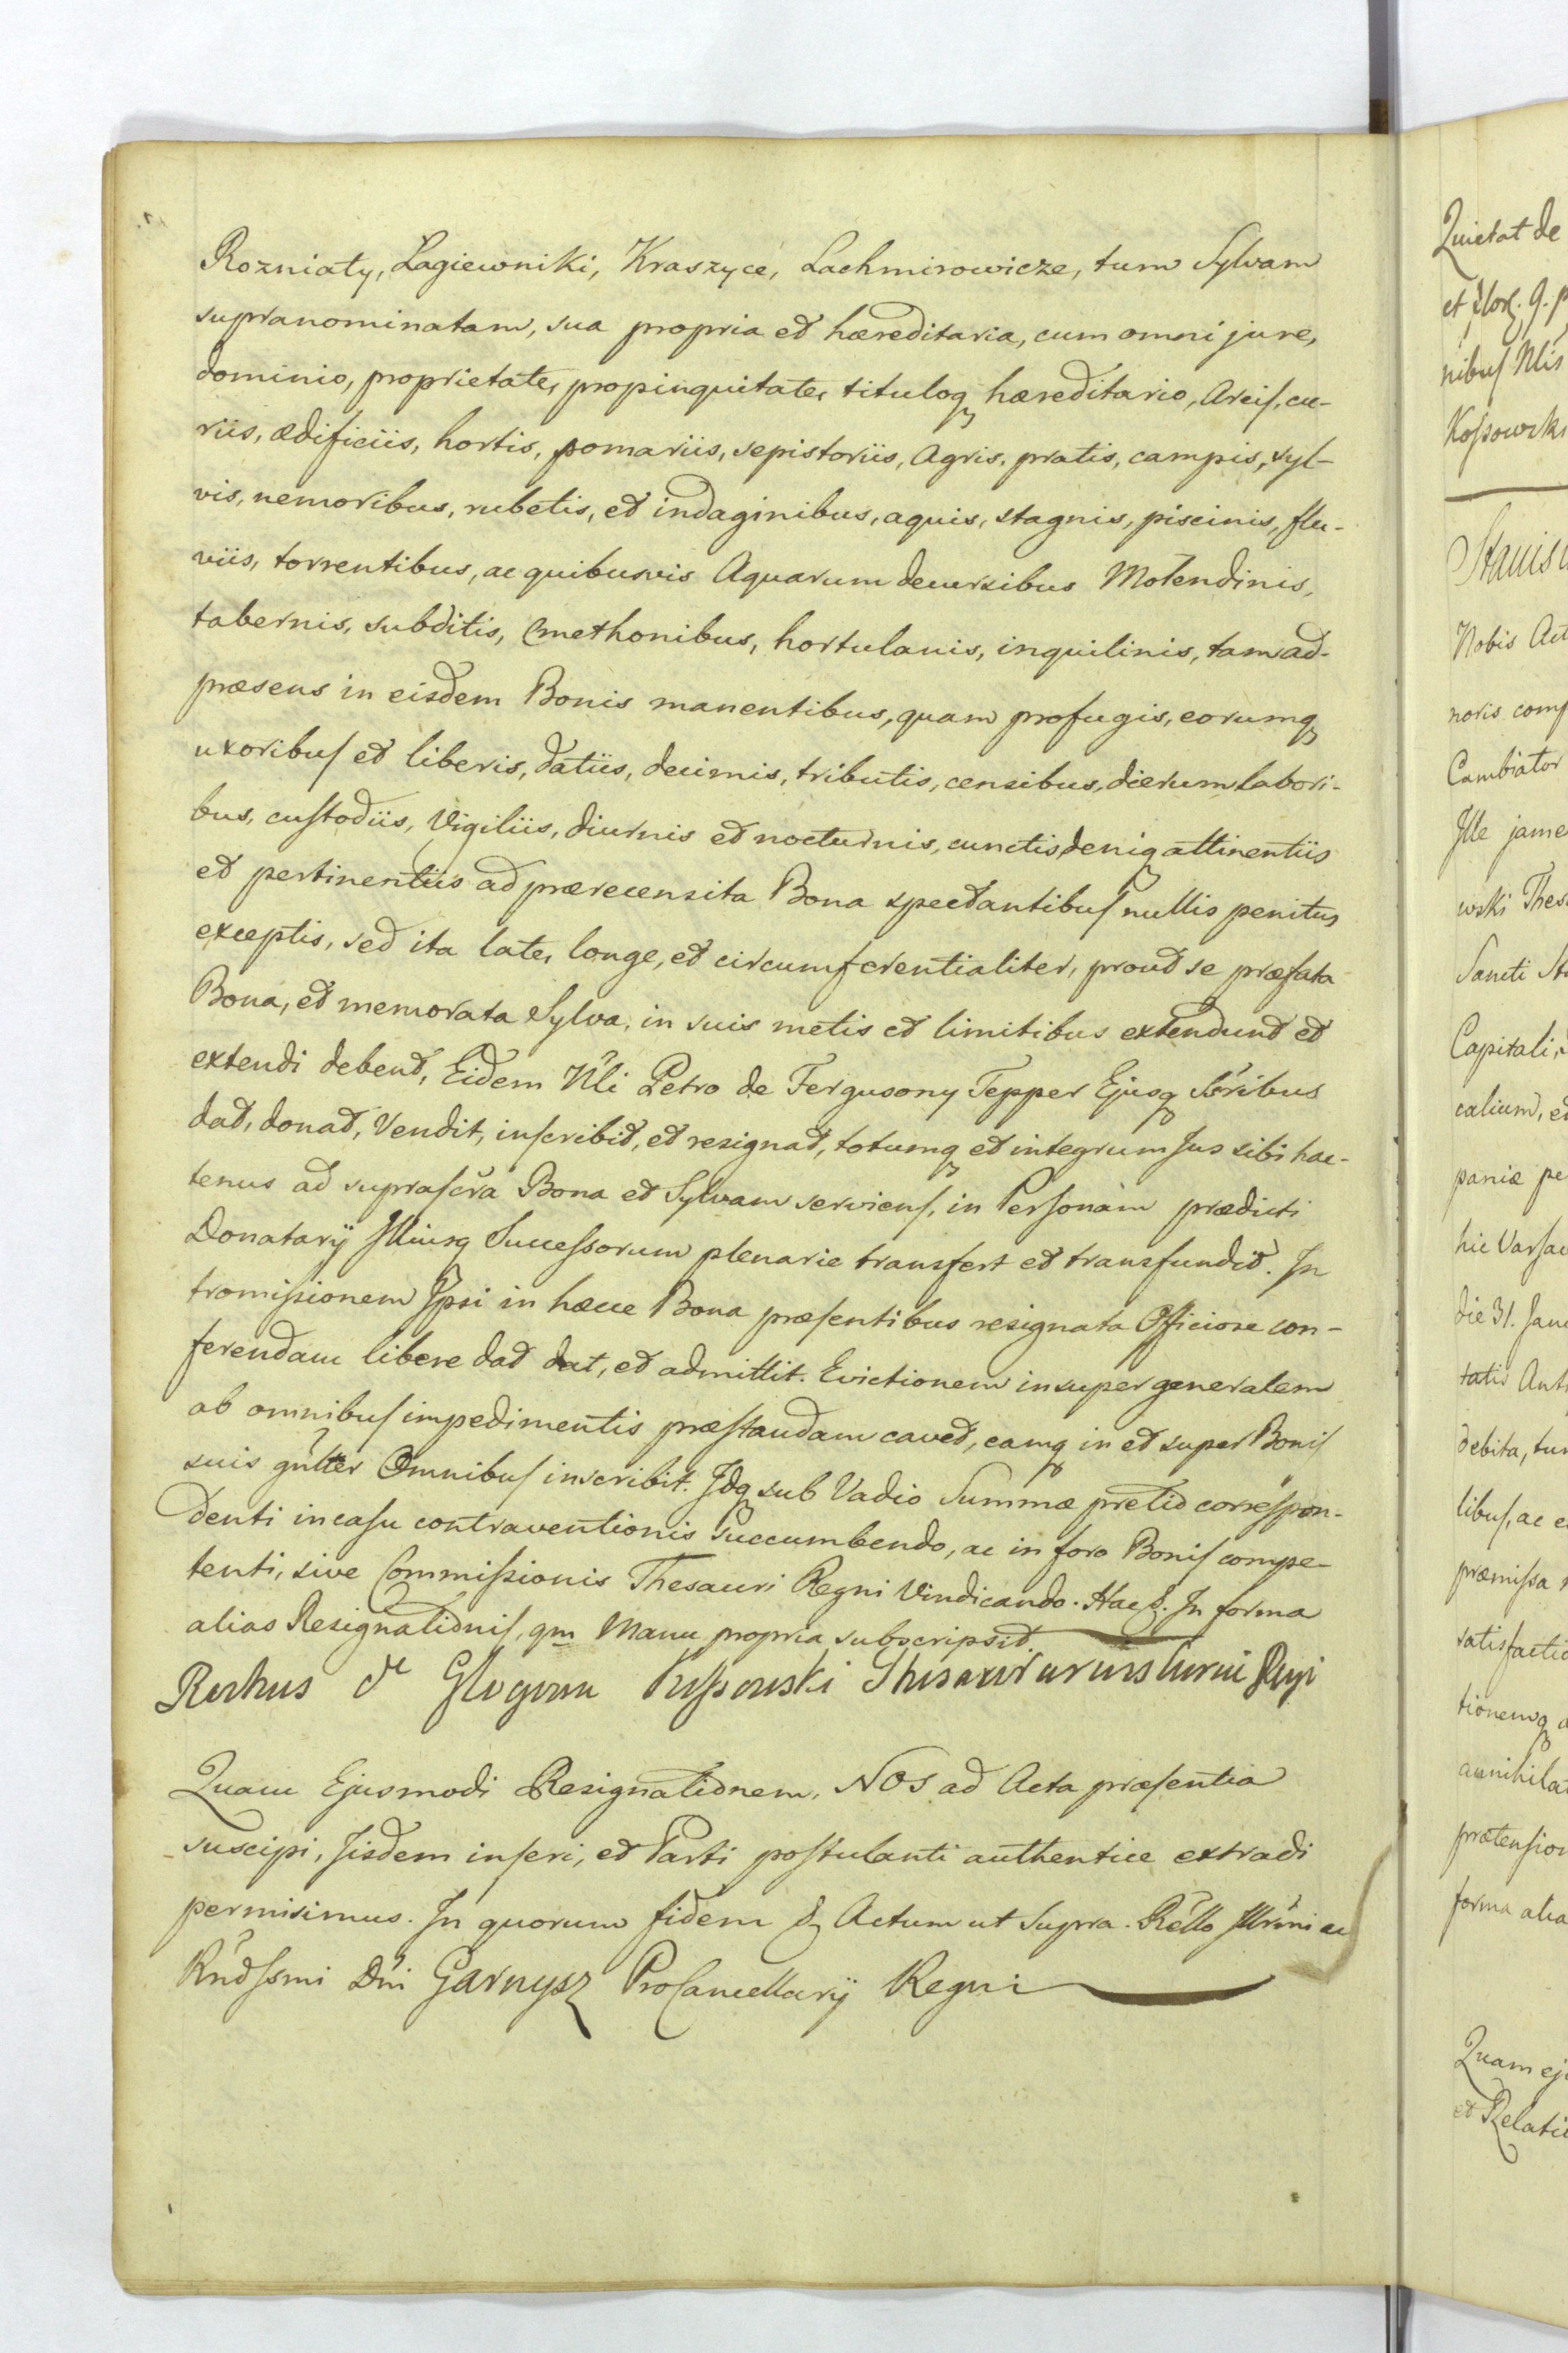 Rozniaty, Łagiewniki, Kraszyce, Lachmirowicze, tum Sylvam
supranominatam, sua propria et hæreditaria, cum omni jure,
dominio, proprietate, propinquitate, tituloq hæreditario, Areis, cu-
riis, ædificiis, hortis, pomariis, sepistoriis, Agris, pratis, campis, syl-
vis, nemoribus, rubetis, et indaginibus, aquis, stagnis, piscinis, flu-
viis, torrentibus, ac quibusvis Aquarum decursibus Molendinis,
tabernis, subditis, Cmethonibus, hortulanis, inquilinis, tam ad-
præsens in eisdem Bonis manentibus, quam profugis, eorumq
uxoribus et liberis, datiis, decimis, tributis, censibus, dierum labori-
bus, custodiis, Vigiliis, diurnis et nocturnis, cunctis deniq attinentiis
et pertinentiis ad prærecensita Bona spectantibus nullis penitus
exceptis, sed ita late, longe, et circumferentialiter, prout se præfata
Bona, et memorata Sylva, in suis metis et limitibus extendunt et
extendi debent, Eidem Nli Petro de Fergusony Tepper Ejusq Sŕribus
dat, donat, Vendit, inscribit, et resignat, totumq et integrum Jus sibi hac-
tenus ad suprascr̃a Bona et Sylvam serviens, in Personam prædicti
Donatarÿ Illiusq Successorum plenarie transfert et transfundit. In
tromissionem Ipsi in hæcce Bona præsentibus resignata Officiose con-
ferendam libere dat dat, et admittit. Evictionem insuper generalem
ab omnibus impedimentis præstandam cavet, eamq in et super Bonis
suis gñlter Omnibus inscribit. Idq sub Vadio Summæ pretio correspon-
denti in casu contraventionis Succumbendo, ac in foro Bonis compe-
tenti, sive Commissionis Thesauri Regni Vindicando. Hac &. In forma
alias Resignationis, qm Manu propria subscripsit.
de
Quam Ejusmodi Resignationem, NOS ad Acta præsentia
suscipi, Iisdem inseri, et Parti postulanti authentice extradi
permisimus. In quorum fidem & Actum ut Supra. Rello Illr̃mi ac
Rnd̃ssmi Dni Garnysz ProCancellarÿ Regni
Quietat de
Kossowski
Nobis Act
noris comp
Cambiator
Ille jame
wski Thes
Sancti St
Capitali,
calium, et
paniæ pe
hic Varsav
die 31. Janu
tatis Ant
debita, tum
libus, ac e
præmissa
satisfactio
tionemq a
annihilat
prætension
forma alia
Quam eju
et Relatio